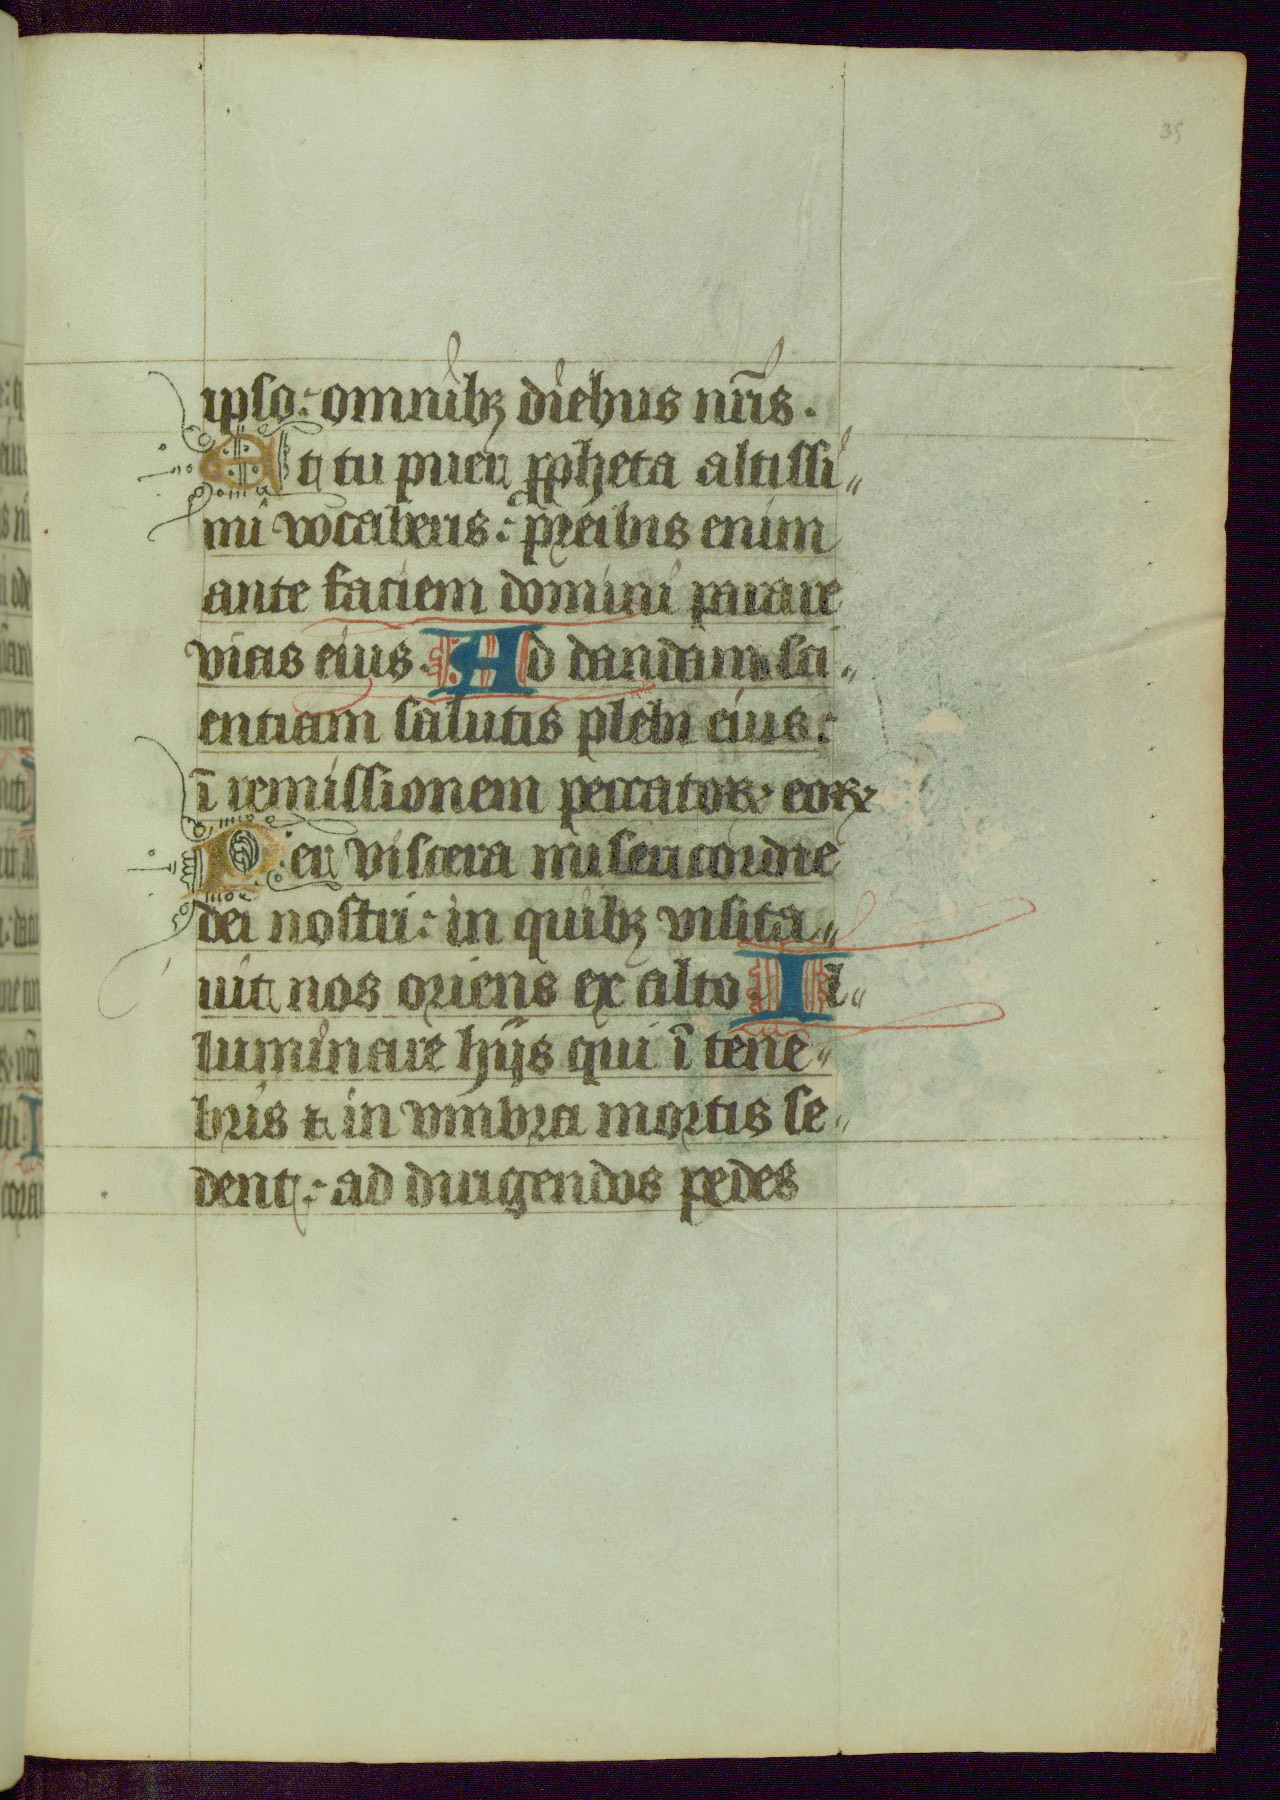 35
ipso: omnibꝫ diebus nr̄is.
Et tu puer ꝓpheta altissi〃
mi vocaberis: preibis enim
ante faciem domini parare
vias eius. Ad dandam sci〃
entiam salutis plebi eius:
ī remissionem peccatoꝝ eoꝝ
Per viscera misericordie
dei nostri: in quibꝫ visita〃
uit nos oriens ex alto. Il〃
luminare hijs qui ī tene〃
bris ⁊ in vmbra mortis se〃
dent: ad dirigendos pedes